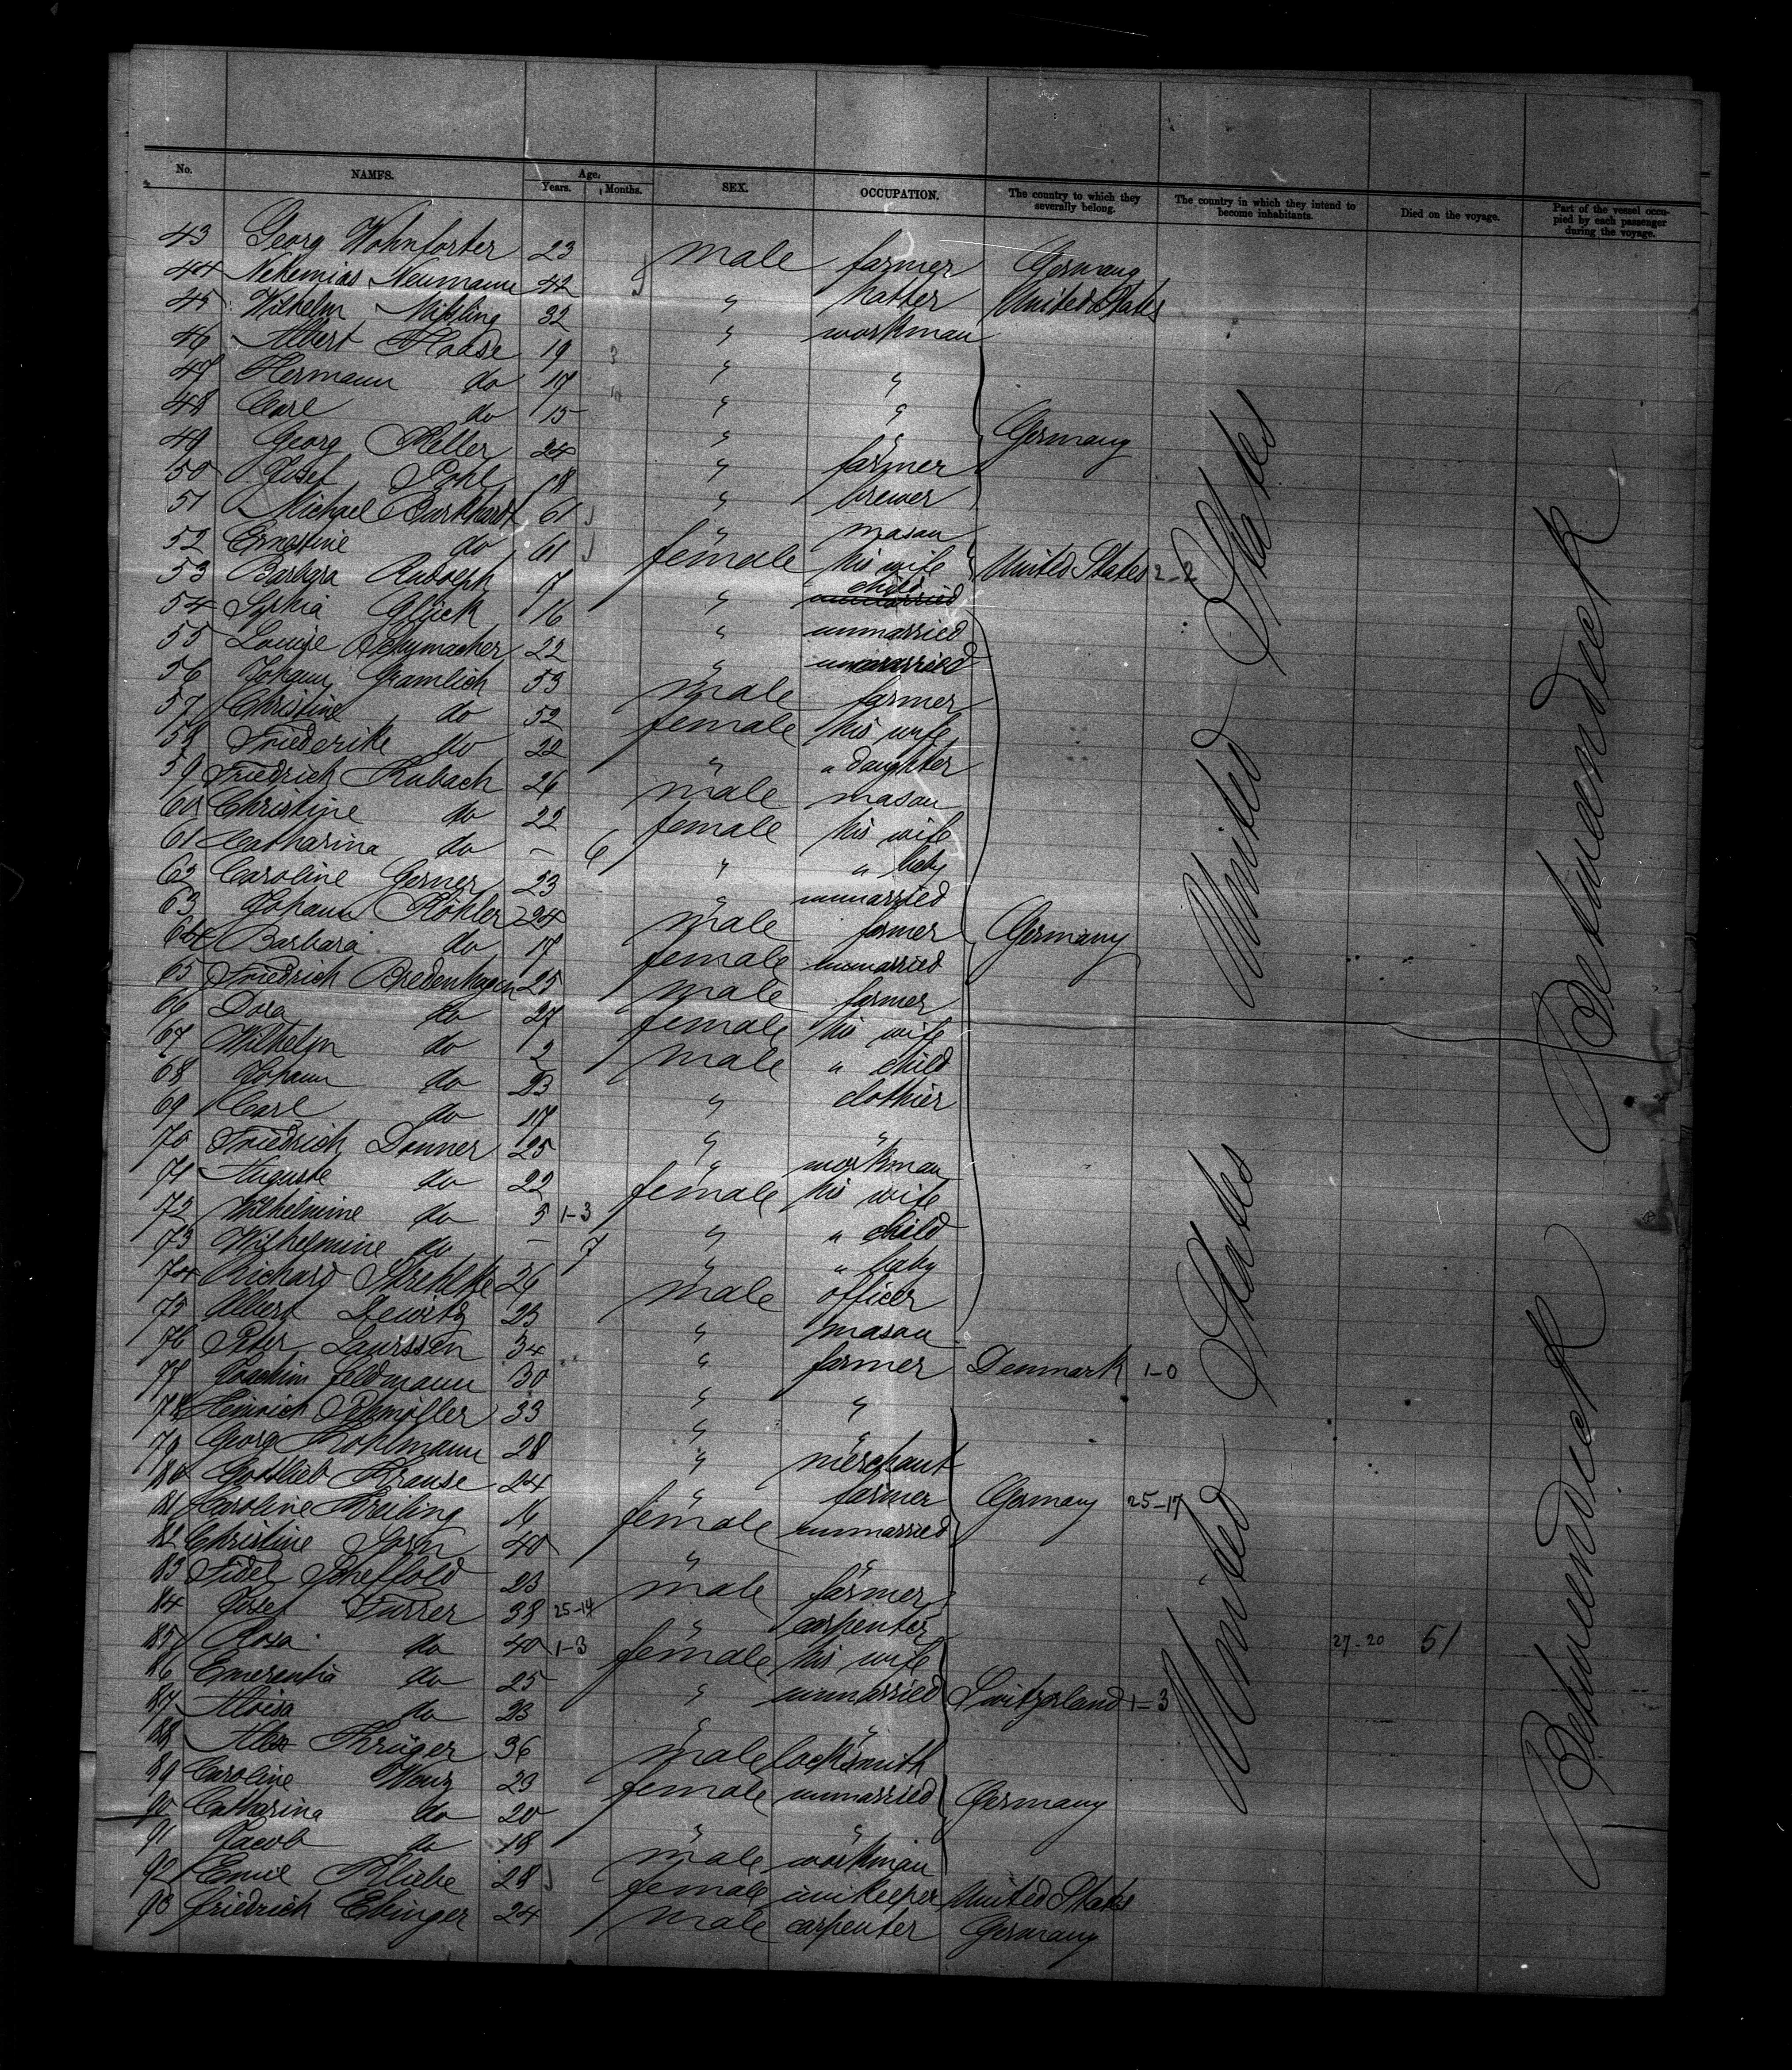 No. NAMES. Age. Years. Months. SEX. OCCUPATION. The country to which they severally belong. The country in which they intend to become inhabitants. Died on the voyage. Part of the vessel occupied by each passenger during the voyage.
43 Georg Wohnforter 23 male farmer Germany
44 Nehemias Neumann 42 " hatter United States
45 Wilhelm 32 " workman
46 Albert Haase 19 " "
47 Hermann do 17 " "
48 Carl do 15 " " Germany
49 Georg Keller 24 " farmer
50 Josef Pohl 18 " brewer
51 Michael Burkhardt 61 " mason
52 Ernestine do 61 female his wife United States 2-2
53 Barbara Rudolph 7 " child
54 Sophia Glück 16 " unmarried
55 Louise Schumacher 22 " unmarried
56 Johann Gramlich 53 male farmer
57 Christine do 52 female his wife
58 Friederike do 22 " " daughter
59 Friedrich Rubach 26 male mason
60 Christine do 22 female his wife
61 Catharina do - 6 " " baby
62 Caroline Gerner 23 " unmarried
63 Johann Köhler 24 male farmer Germany
64 Barbara do 17 female unmarried
65 Friedrich Bredenhagen 25 male farmer
66 Dora do 27 female his wife
67 Wilhelm do 2 male " child
68 Johann do 23 " clothier
69 Carl do 17 " "
70 Friedrich Donner 25 " workman
71 Auguste do 22 female his wife
72 Wilhelmine do 5 1-3 " " child
73 Wilhelmine do - 7 " " baby
74 Richard Strehlke 26 male officer
75 Albert Dewitz 23 " mason
76 Peter Laurssen 34 " farmer Denmark 1-0
77 Joachim Feldmann 30 " "
78 Heinrich 33 " "
79 Georg Kohlmann 28 " merchant
80 Gottlieb Krause 24 " farmer Germany 25-17
81 Caroline Kreiling 16 female unmarried
82 Christine 40 " "
83 Fidel Scheffold 23 male farmer
84 Josef Furrer 38 25-14 " carpenter
85 Rosa do 40 1-3 female his wife 27-20 51
86 Emerentia do 25 " unmarried Switzerland 1-3
87 Aloisa do 23 " "
88 Alex Krüger 36 male locksmith
89 Caroline Wenz 23 female unmarried Germany
90 Catharina do 20 " "
91 Jacob do 18 male workman
92 Emil Kliebe 28 female innkeeper United States
93 Friedrich Ebinger 24 male carpenter Germany
United States
United States
Betweendeck
Betweendeck